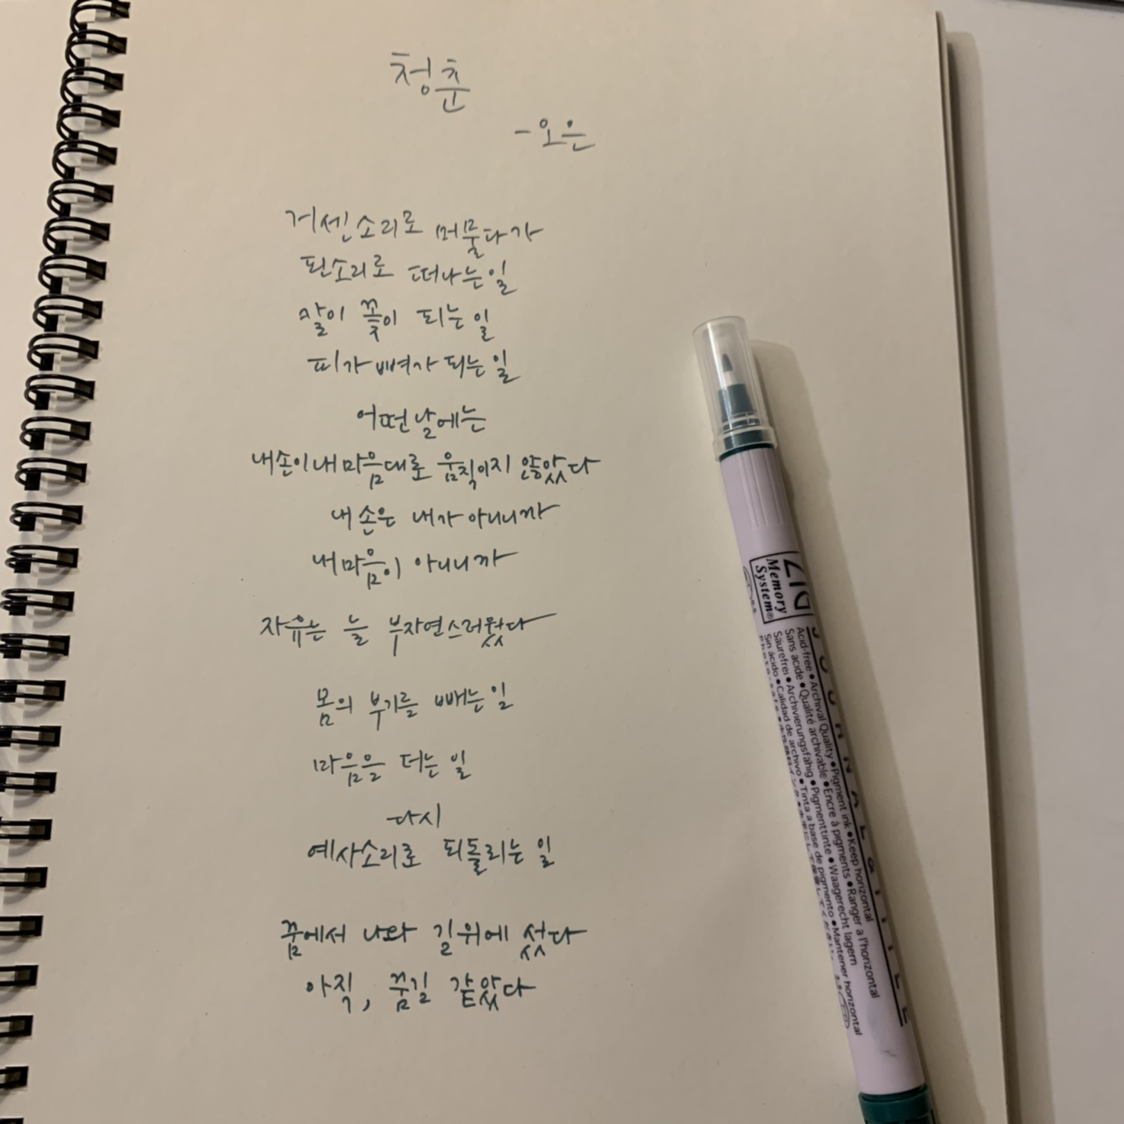 청춘
- 오은
거센소리로 머물다가
된소리로 떠나는 일
살이 꽃이 되는 일
피가 뼈가 되는 일
어떤 날에는
내 손이 내 마음대로 움직이지 않았다
내 손은 내가 아니니까
내 마음이 아니니까
자유는 늘 부자연스러웠다
몸의 부기를 빼는 일
마음을 더는 일
다시
예사소리로 되돌리는 일
꿈에서 나와 길 위에 섰다
아직, 꿈길 같았다
ZIG
Memory System®
JOURNAL & TITLE
Acid-free • Archival Quality • Pigment ink • Keep horizontal
Sans acide • Qualité archivable • Encre à pigments • Ranger a l'horizontal
Säurefrei • Archivierungsfähig • Pigmenttinte • Waagerecht lagern
Sin ácido • Calidad de archivo • Tinta a base de pigmento • Mantener horizontal